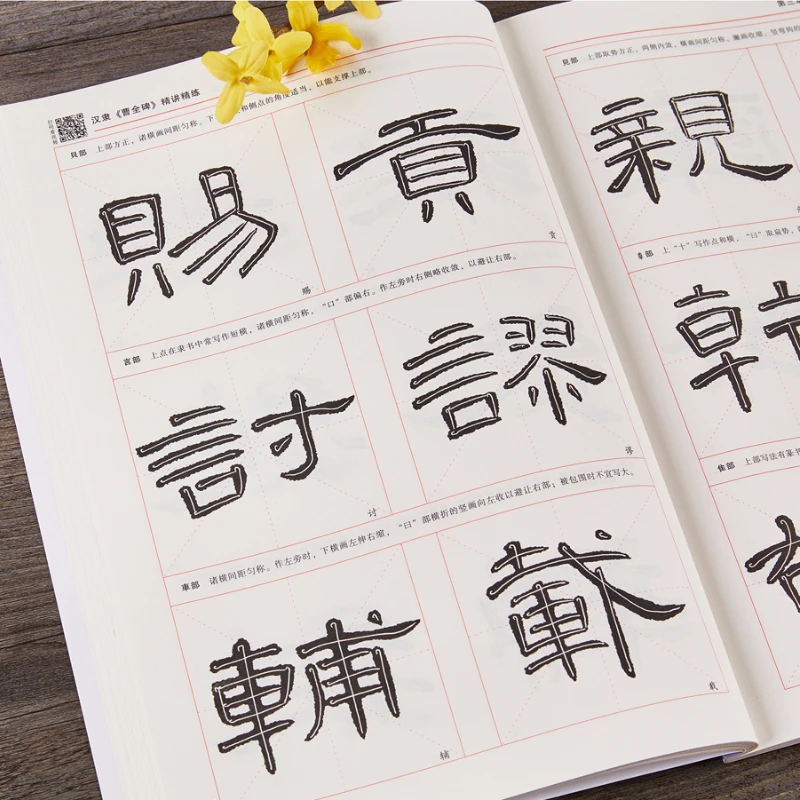 汉隶《曹全碑》精讲精练
貝部 上部方正，诸横画间距匀称。下
和侧点的角度适当，以能支撑上部。
賜 貢
赐 贡
言部 上点在隶书中常写作短横，诸横间距匀称，“口”部偏右。作左旁时右侧略收敛，以避让右部。
討 謬
讨 谬
車部 诸横间距匀称。作左旁时，下横画左伸右缩，“曰”部横折的竖画向左收以避让右部；被包围时不宜写大。
輔 載
辅 载
第二
見部 上部取势方正，两侧内敛，横画间距匀称，撇画收缩，竖弯钩的
親
上“十”写作点和横，“曰”取扁势，
隹部 上部写法有篆书